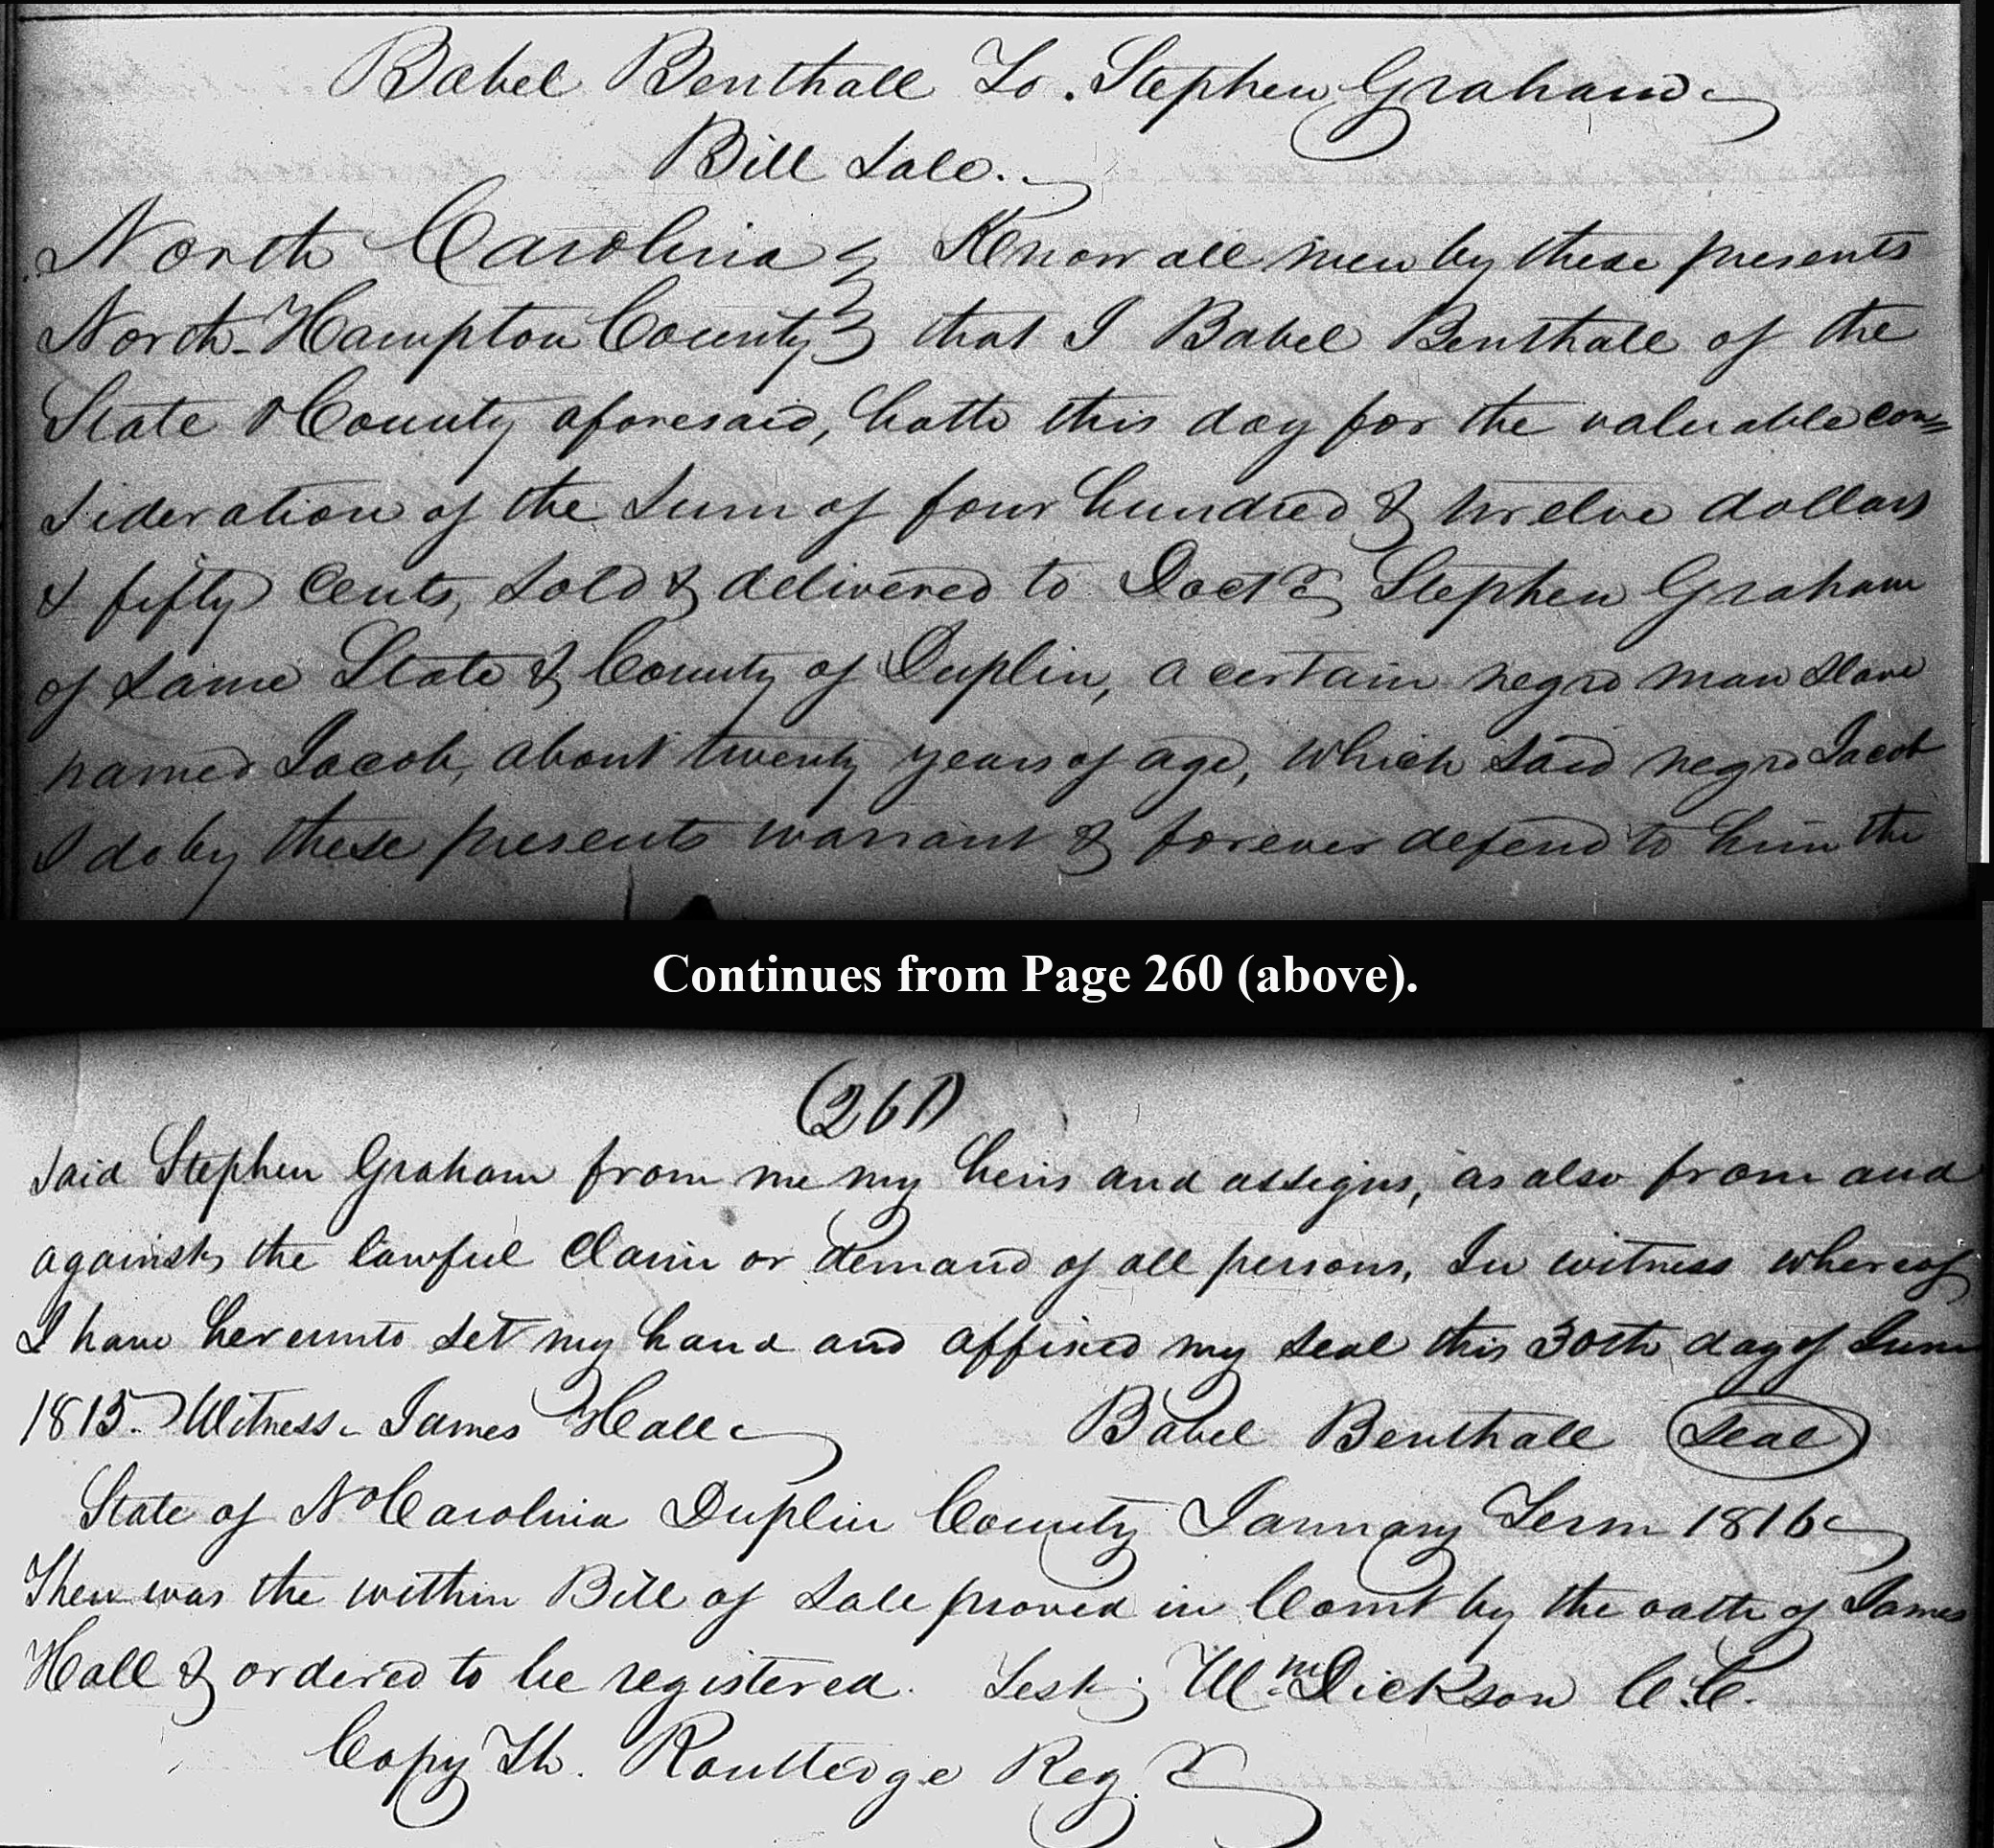 Babel Benthall To. Stephen Graham
Bill Sale.
North Carolina } Know all men by these presents
North-Hampton County } that I Babel Benthall of the
State & County aforesaid, hath this day for the valuable con=
sideration of the Sum of four hundred & twelve dollars
& fifty Cents, Sold & delivered to Doctr Stephen Graham
of same State & County of Duplin, a certain negro man slave
named Jacob, about twenty years of age, which said negro Jacob
I do by these presents warrant & forever defend to him the
Continues from Page 260 (above).
(261)
said Stephen Graham from me my heirs and assigns, as also from and
against the lawful claim or demand of all persons, In witness whereof
I have hereunto set my hand and affixed my seal this 30th day of June
1815. Witness James Hall Babel Benthall Seal
State of No Carolina Duplin County January Term 1816
Then was the within Bill of Sale proved in Court by the oath of James
Hall & ordered to be registered. Test; Wm. Dickson C.C.
Copy Th. Routledge Reg. r